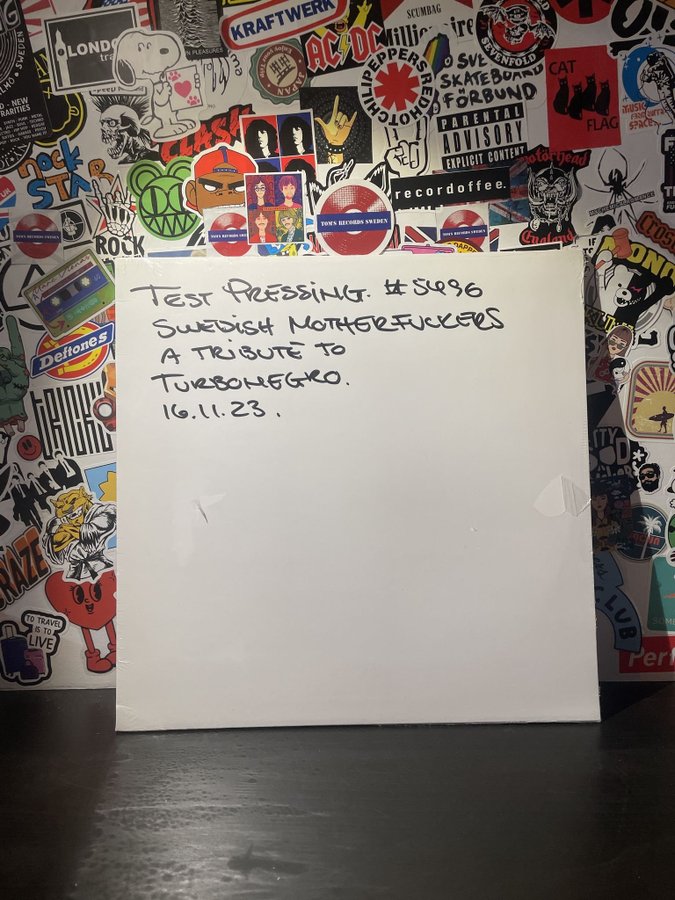 LONDON
KRAFTWERK
SCUMBAG
Millionaire
AC/DC
PLEASURES
JAPAN
REDHOTCHILIPEPPERS
SVE
SKATEBOARD
FÖRBUND
SEVENFOLD
CAT
FLAG
PARENTAL
ADVISORY
EXPLICIT CONTENT
CLASH
ROCK
STAR
recordoffee.
Motörhead
England
TOM'S RECORDS SWEDEN
TOM'S RECORDS SWEDEN
TOM'S RECORDS SWEDEN
TOM'S RECORDS SWEDEN
ROCK
Deftones
TEST PRESSING. #5496
SWEDISH MOTHERFUCKERS
A TRIBUTE TO
TURBONEGRO.
16.11.23.
TO TRAVEL
IS TO
LIVE
CLUB
Perf